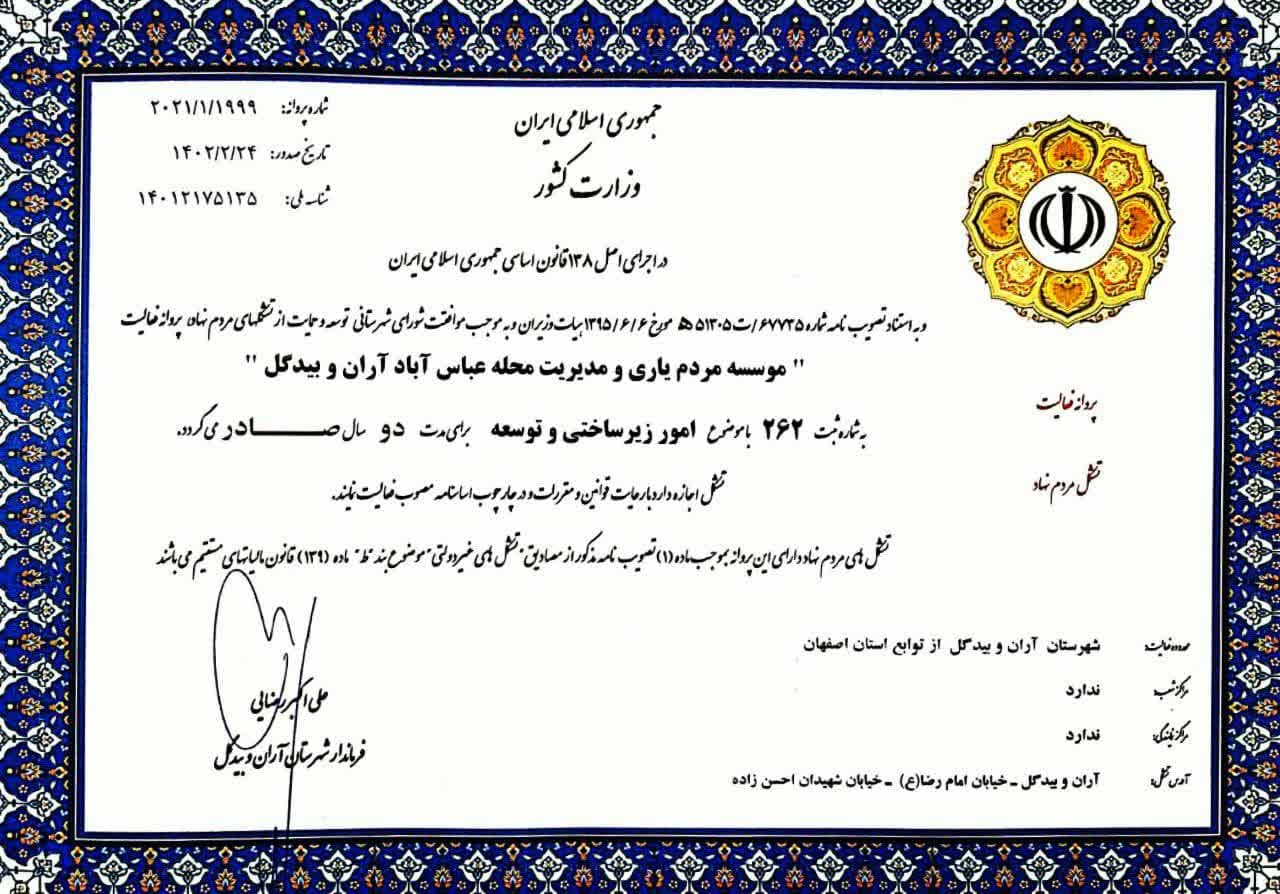 جمهوری اسلامی ایران
وزارت کشور
شماره پروانه: ۲۰۲۱/۱/۱۹۹۹
تاریخ صدور: ۱۴۰۲/۲/۲۴
شناسه ملی: ۱۴۰۱۲۱۷۵۱۳۵
در اجرای اصل ۱۳۸ قانون اساسی جمهوری اسلامی ایران
و به استناد تصویب نامه شماره ۶۷۷۳۵/ت۵۱۳۰۵ هـ مورخ ۱۳۹۵/۶/۶ هیات وزیران و به موجب موافقت شورای شهرستانی توسعه و حمایت از تشکلهای مردم نهاد، پروانه فعالیت
" موسسه مردم یاری و مدیریت محله عباس آباد آران و بیدگل "
به شماره ثبت ۲۶۲ با موضوع امور زیرساختی و توسعه برای مدت دو سال صــادر می گردد.
تشکل اجازه دارد با رعایت قوانین و مقررات و در چارچوب اساسنامه مصوب فعالیت نمایند.
تشکل های مردم نهاد دارای این پروانه بموجب ماده (۱) تصویب نامه مذکور از مصادیق "تشکل های غیردولتی" موضوع بند "ط" ماده (۱۳۹) قانون مالیاتهای مستقیم می باشند
پروانه فعالیت
تشکل مردم نهاد
محدوده فعالیت: شهرستان آران و بیدگل از توابع استان اصفهان
مراکز شعب: ندارد
مراکز نمایندگی: ندارد
آدرس تشکل: آران و بیدگل ـ خیابان امام رضا(ع) ـ خیابان شهیدان احسن زاده
علی اکبر رضایی
فرماندار شهرستان آران و بیدگل